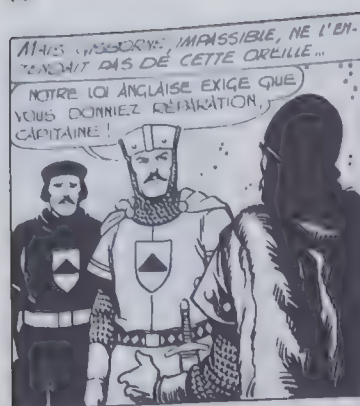 MAIS GISBORNE, IMPASSIBLE, NE L'EN-
TENDAIT PAS DE CETTE OREILLE...
NOTRE LOI ANGLAISE EXIGE QUE
VOUS DONNIEZ RÉPARATION,
CAPITAINE !